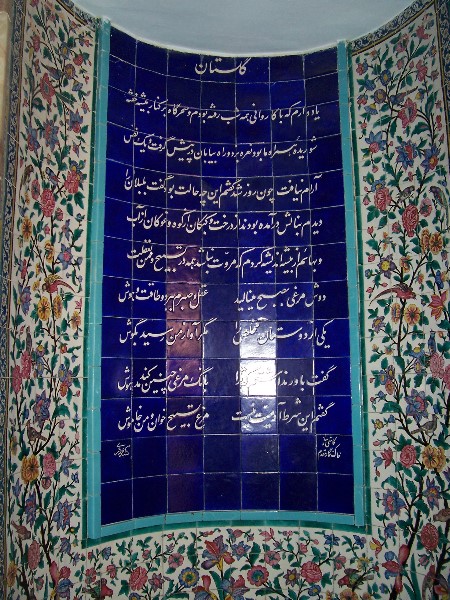 گلستان
یاد دارم که با کاروانی همه شب رفته بودم و سحرگاه بر کنار بیشه خفته
شوریده‌ای همراه ما بود نعره برد و راه بیابان در پیش گرفت و یک نفس
آرام نیافت چون روز شد گفتم این چه حالت بود گفت بلبلان را
دیدم بنالش در آمده بودند از درخت و کبکان از کوه و غوکان از آب
و بهائم از بیشه اندیشه کردم که مروت نباشد همه در تسبیح و من بغفلت
دوش مرغی بصبح مینالید عقل و صبرم ببرد و طاقت و هوش
یکی از دوستان مخلص را مگر آواز من رسید بگوش
گفت باور نداشتم که ترا بانگ مرغی چنین کند مدهوش
گفتم این شرط آدمیت نیست مرغ تسبیح خوان و من خاموش